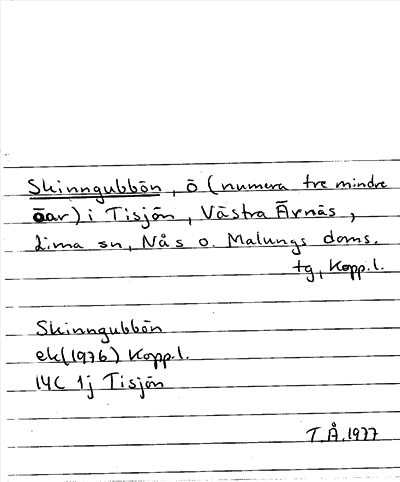 Skinngubbön, ö (numera tre mindre
öar) i Tisjön, Västra Ärnäs,
Lima sn, Nås o. Malungs doms.
tg, Kopp.l.
Skinngubbön
ek (1976) Kopp.l.
14C 1j Tisjön
T.Å. 1977